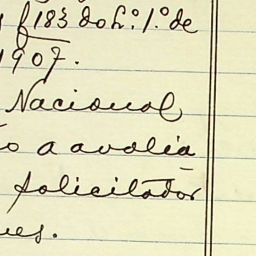 f 183 do L.º 1.º de
1907.
Nacional
o a avalia
solicitador
ues.